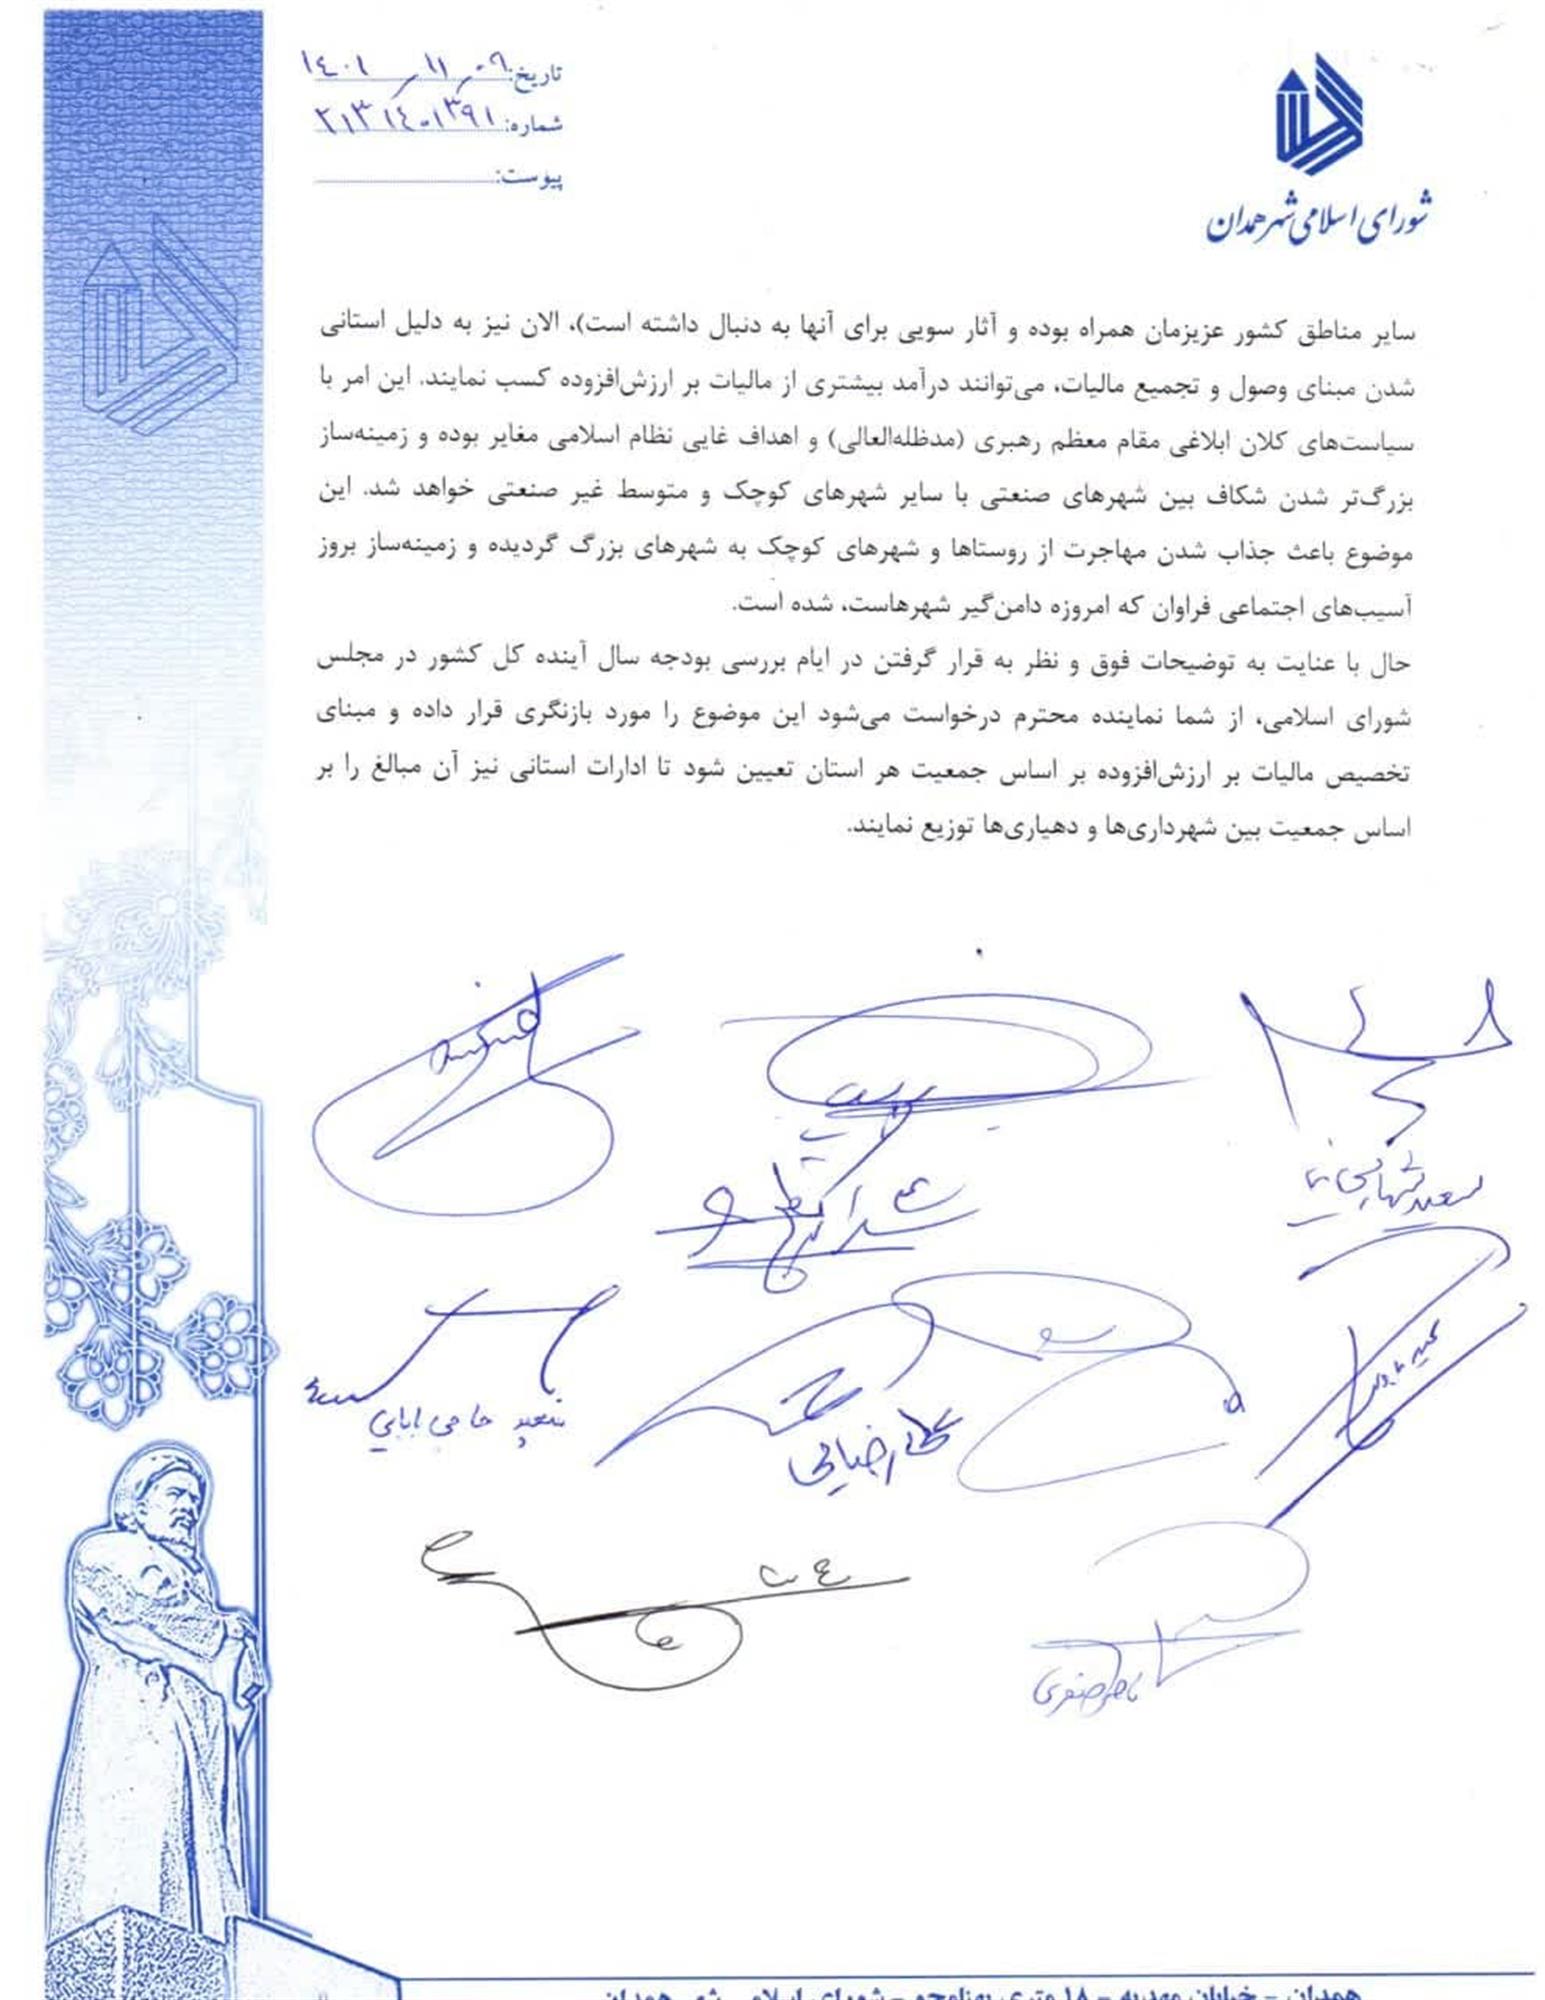 شورای اسلامی شهر همدان
تاریخ: ۱٤۰۱/۱۱/۰۹
شماره:
پیوست:
سایر مناطق کشور عزیزمان همراه بوده و آثار سویی برای آنها به دنبال داشته است)، الان نیز به دلیل استانی
شدن مبنای وصول و تجمیع مالیات، می‌توانند درآمد بیشتری از مالیات بر ارزش‌افزوده کسب نمایند. این امر با
سیاست‌های کلان ابلاغی مقام معظم رهبری (مدظله‌العالی) و اهداف غایی نظام اسلامی مغایر بوده و زمینه‌ساز
بزرگ‌تر شدن شکاف بین شهرهای صنعتی با سایر شهرهای کوچک و متوسط غیر صنعتی خواهد شد. این
موضوع باعث جذاب شدن مهاجرت از روستاها و شهرهای کوچک به شهرهای بزرگ گردیده و زمینه‌ساز بروز
آسیب‌های اجتماعی فراوان که امروزه دامن‌گیر شهرهاست، شده است.
حال با عنایت به توضیحات فوق و نظر به قرار گرفتن در ایام بررسی بودجه سال آینده کل کشور در مجلس
شورای اسلامی، از شما نماینده محترم درخواست می‌شود این موضوع را مورد بازنگری قرار داده و مبنای
تخصیص مالیات بر ارزش‌افزوده بر اساس جمعیت هر استان تعیین شود تا ادارات استانی نیز آن مبالغ را بر
اساس جمعیت بین شهرداری‌ها و دهیاری‌ها توزیع نمایند.
سعید حاجی بابایی
همدان - خیابان مهدیه - ۱۸ متری پهنامجو - شورای اسلامی شهر همدان